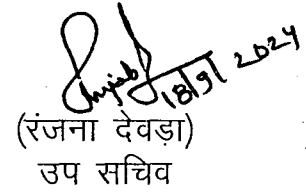 18/9/2024
(रंजना देवड़ा)
उप सचिव